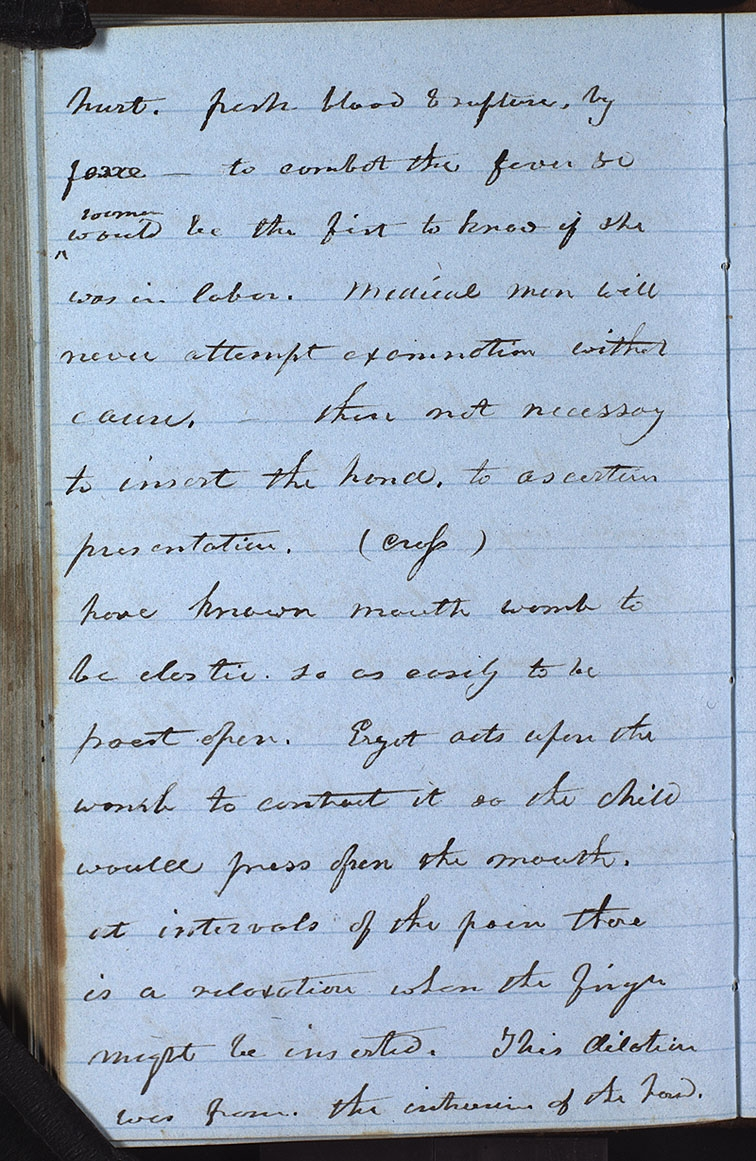 hurt. fresh blood & rupture, by
force — to combat the fever &c
woman
would be the first to know if she
was in labor. Medical men will
never attempt examination without
cause. — then not necessary
to insert the hand, to ascertain
presentation. (Cross)
have known mouth womb to
be elastic. so as easily to be
open. Ergot acts upon the
womb to contract it so the child
would press open the mouth.
at intervals of the pain there
is a relaxation when the finger
might be inserted. This dilation
was from the intrusion of the hand.